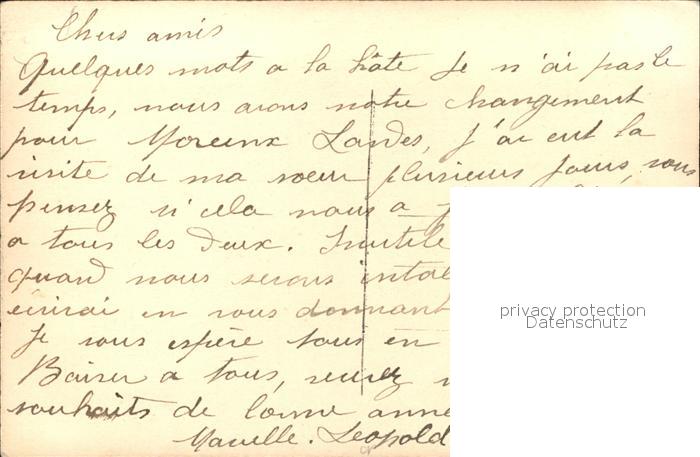 Chers amis
Quelques mots a la hâte Je n'ai pas le
temps, nous avons notre changement
pour Morcenx Landes, J'ai eut la
visite de ma sœur plusieurs jours, vous
pensez si cela nous a
a tous les deux. Inutile
quand nous serons instal
écrirai en vous donnant
Je vous espère tous en
Baiser a tous, recevez
souhaits de bonne anné
Marcelle. Leopold
privacy protection
Datenschutz